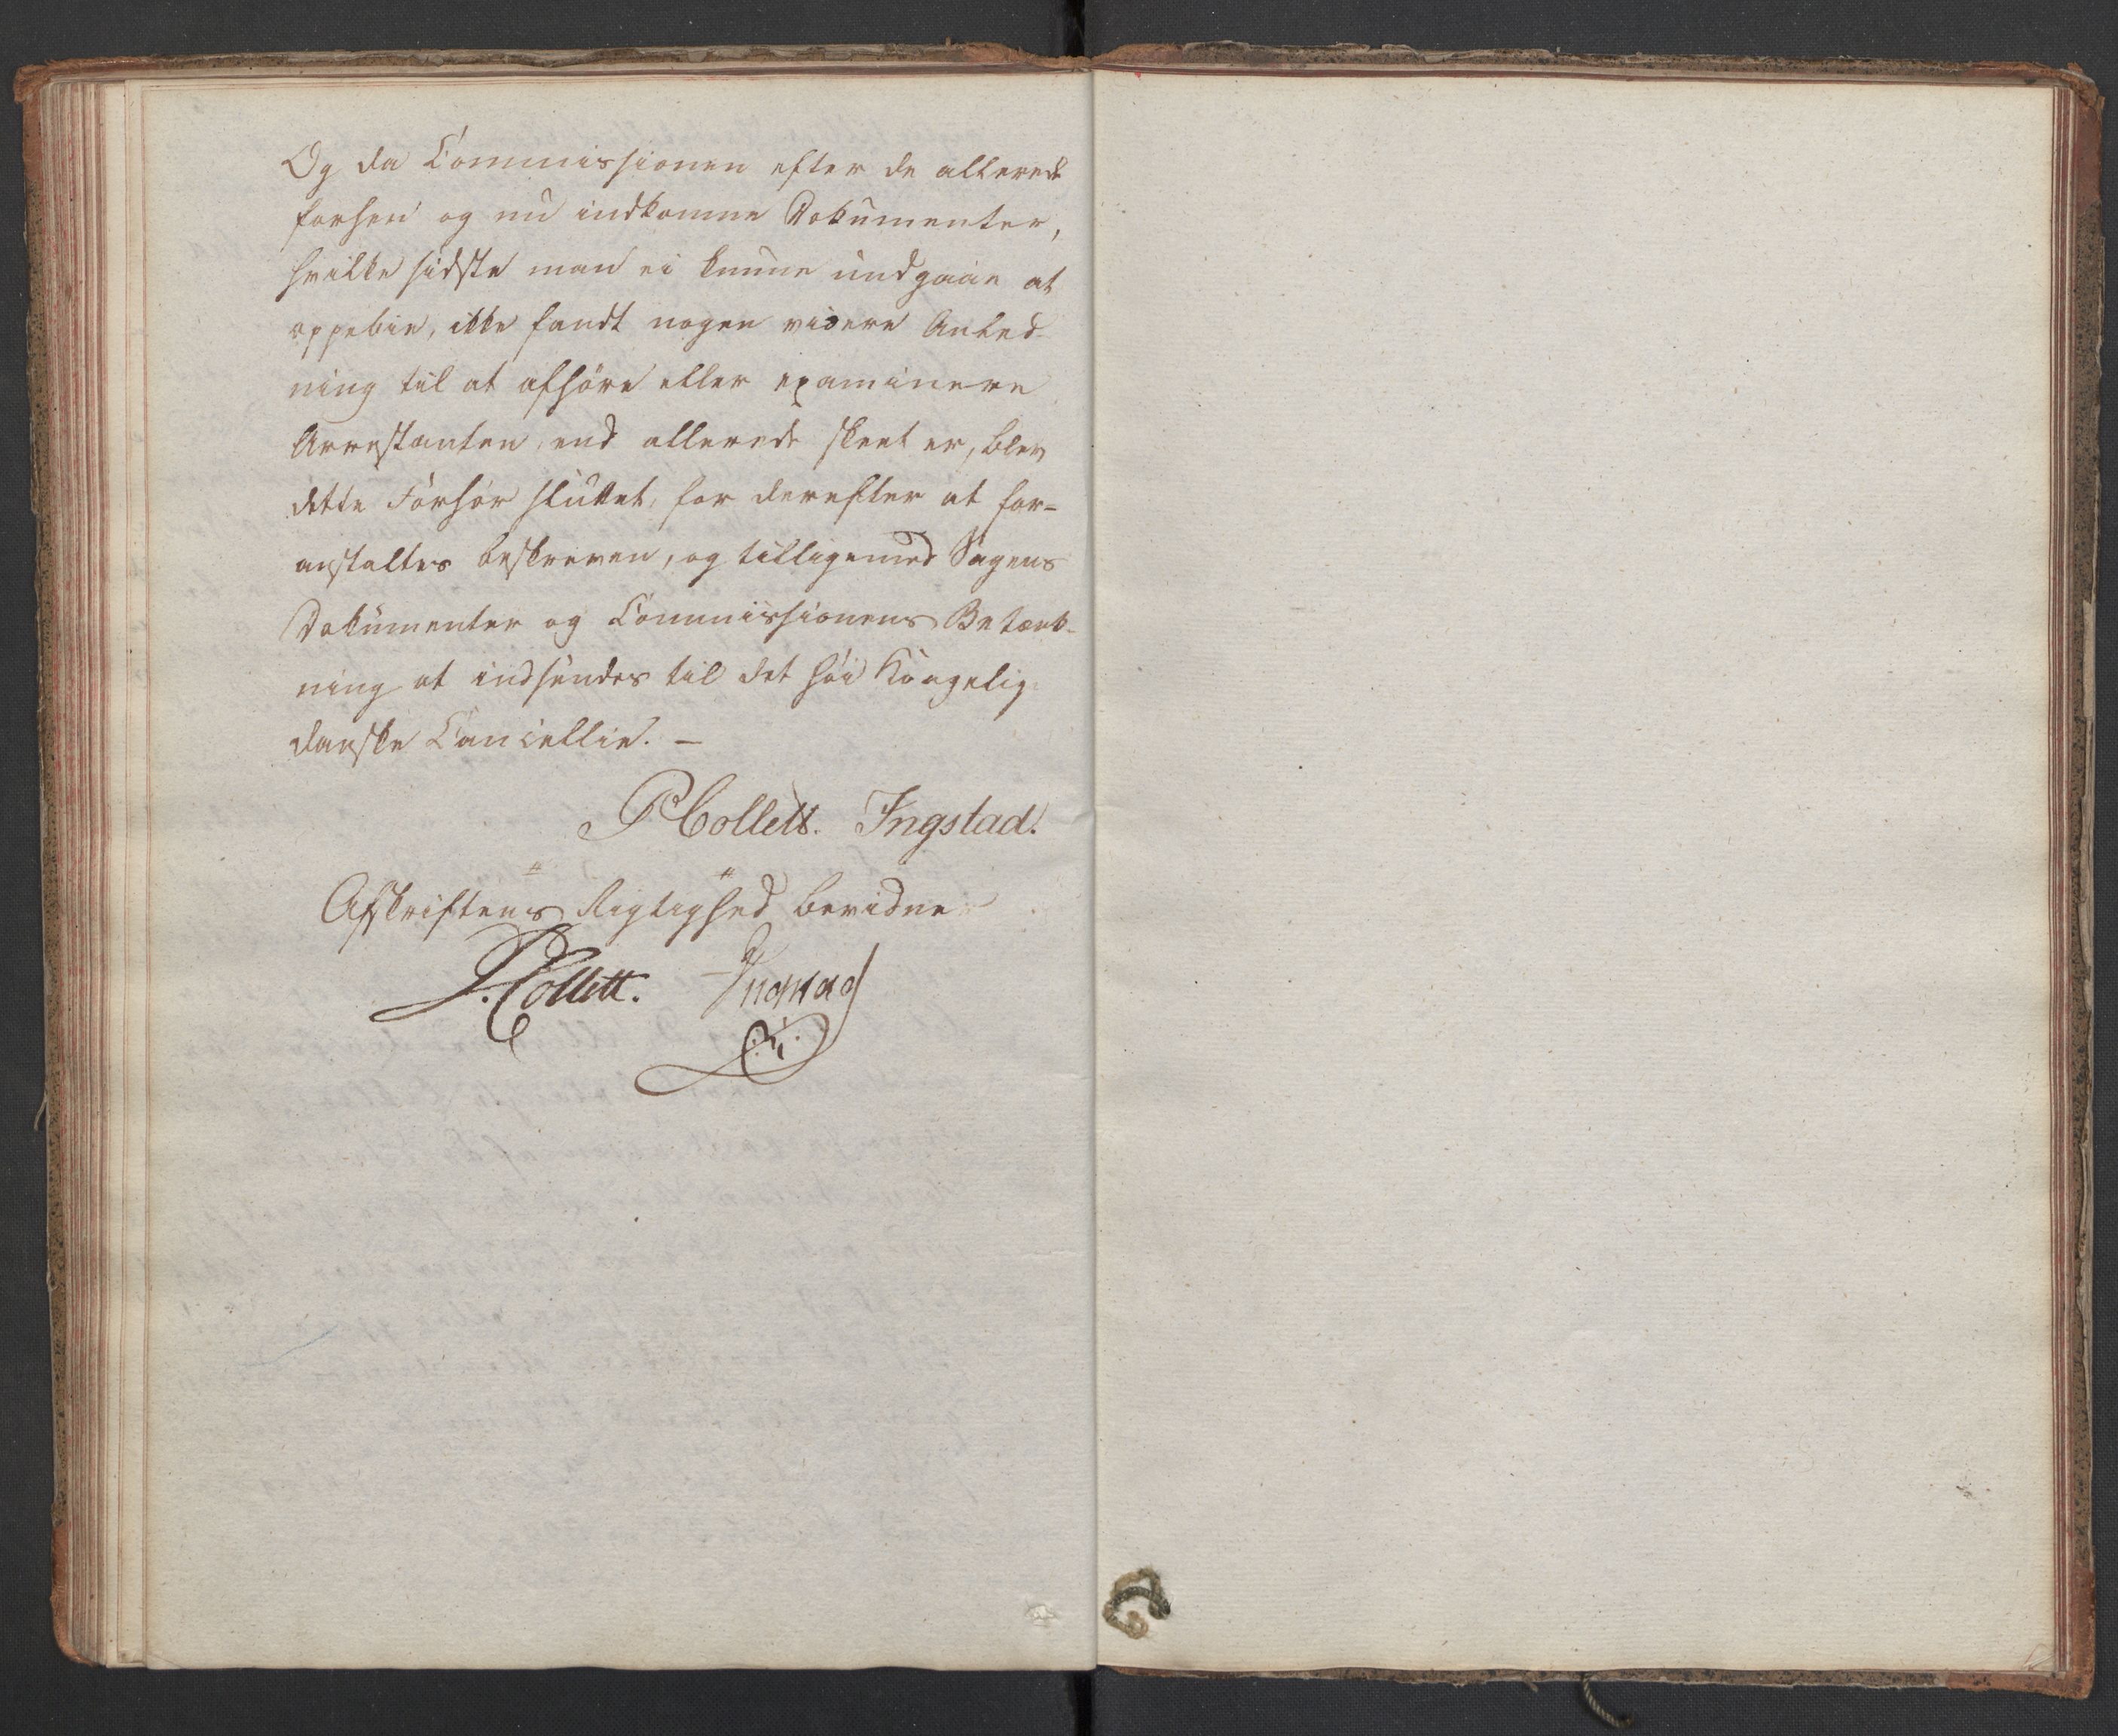 Og da Commissionen efter de allerede
forhen og nu indkomne Dokumenter,
hvilke sidste man ei kunne undgaae at
oppebie, ikke fandt nogen videre Anled-
ning til at afhöre eller examinere
Arrestanten, end allerede skeet er, blev
dette Forhør sluttet, for derefter at for-
anstaltes beskreven, og tilligemed Sagens
Dokumenter og Commissionens Betænk-
ning at indsendes til det høi Kongelig
danske Cancellie. —
P Collett. Ingstad.
Afskriftens Rigtighed bevidne
P. Collett. Ingstad